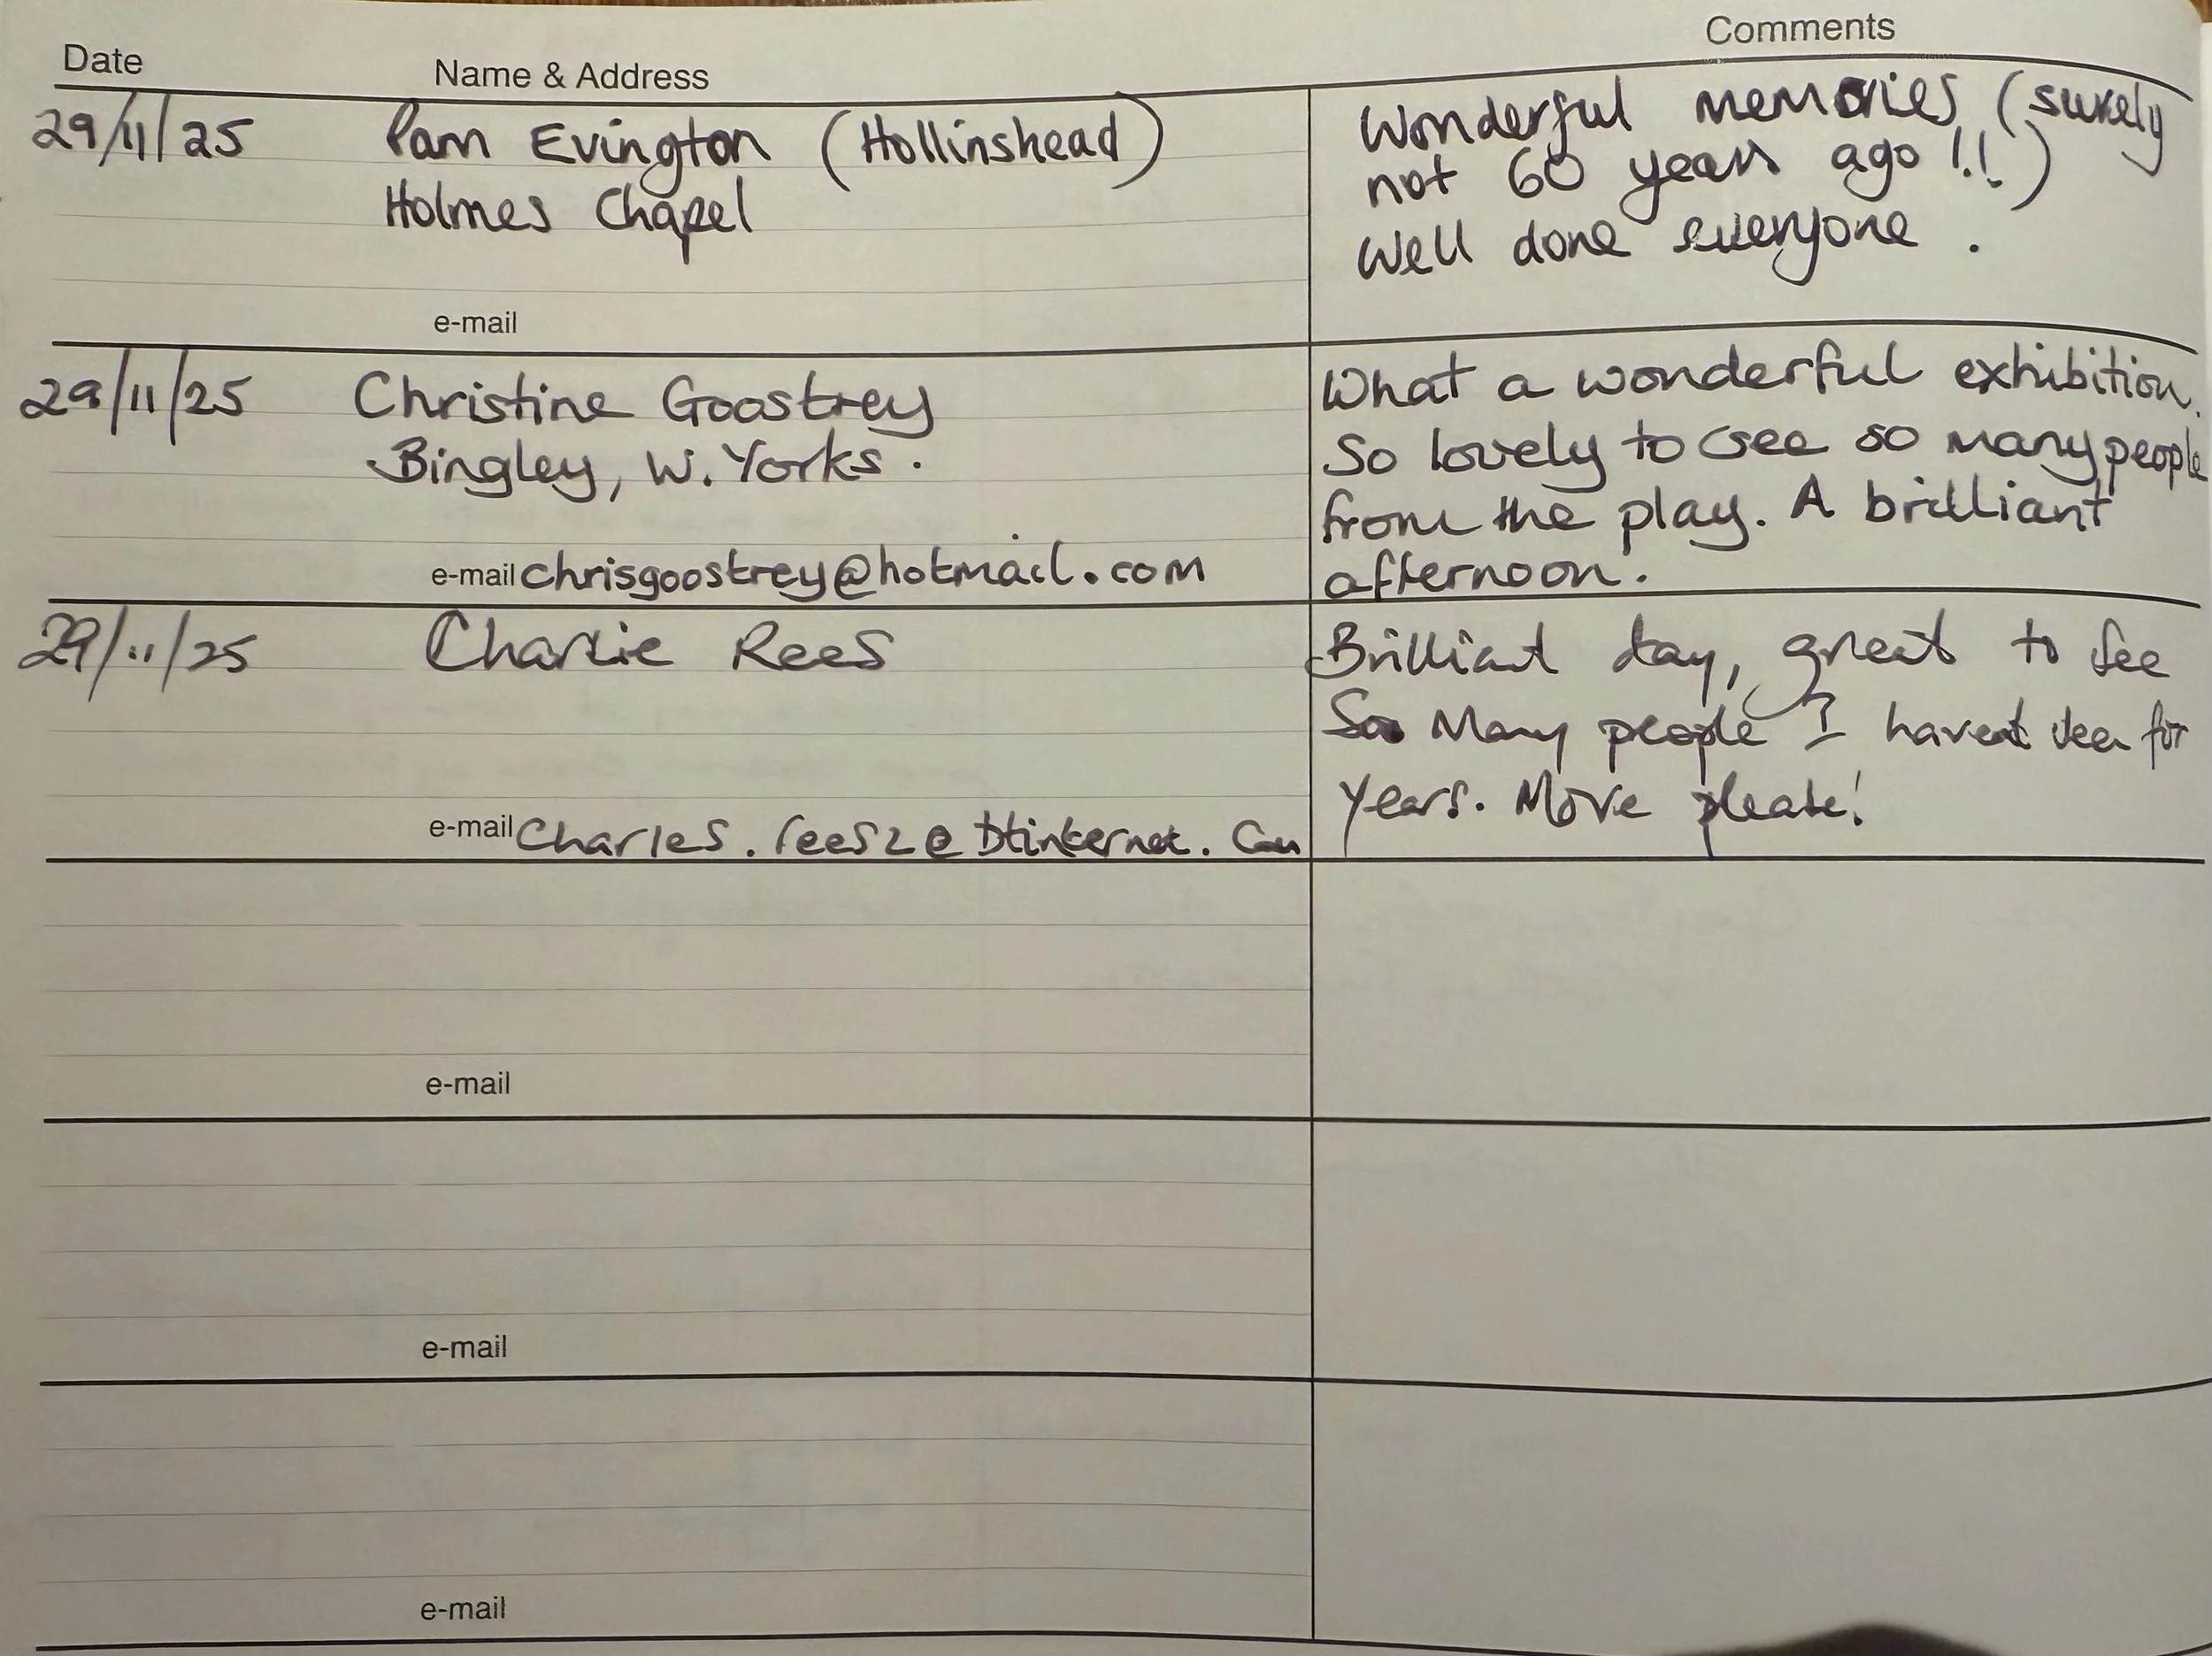 Date Name & Address Comments
29/11/25 Pam Evington (Hollinshead)
Holmes Chapel
e-mail
Wonderful memories (surely
not 60 years ago !!)
Well done everyone.
29/11/25 Christine Goostrey
Bingley, W. Yorks.
e-mail chrisgoostrey@hotmail.com
What a wonderful exhibition.
So lovely to see so many people
from the play. A brilliant
afternoon.
29/11/25 Charlie Rees
e-mail Charles.rees2@btinternet.com
Brilliant day, great to see
So many people I havent seen for
years. More please!
e-mail
e-mail
e-mail